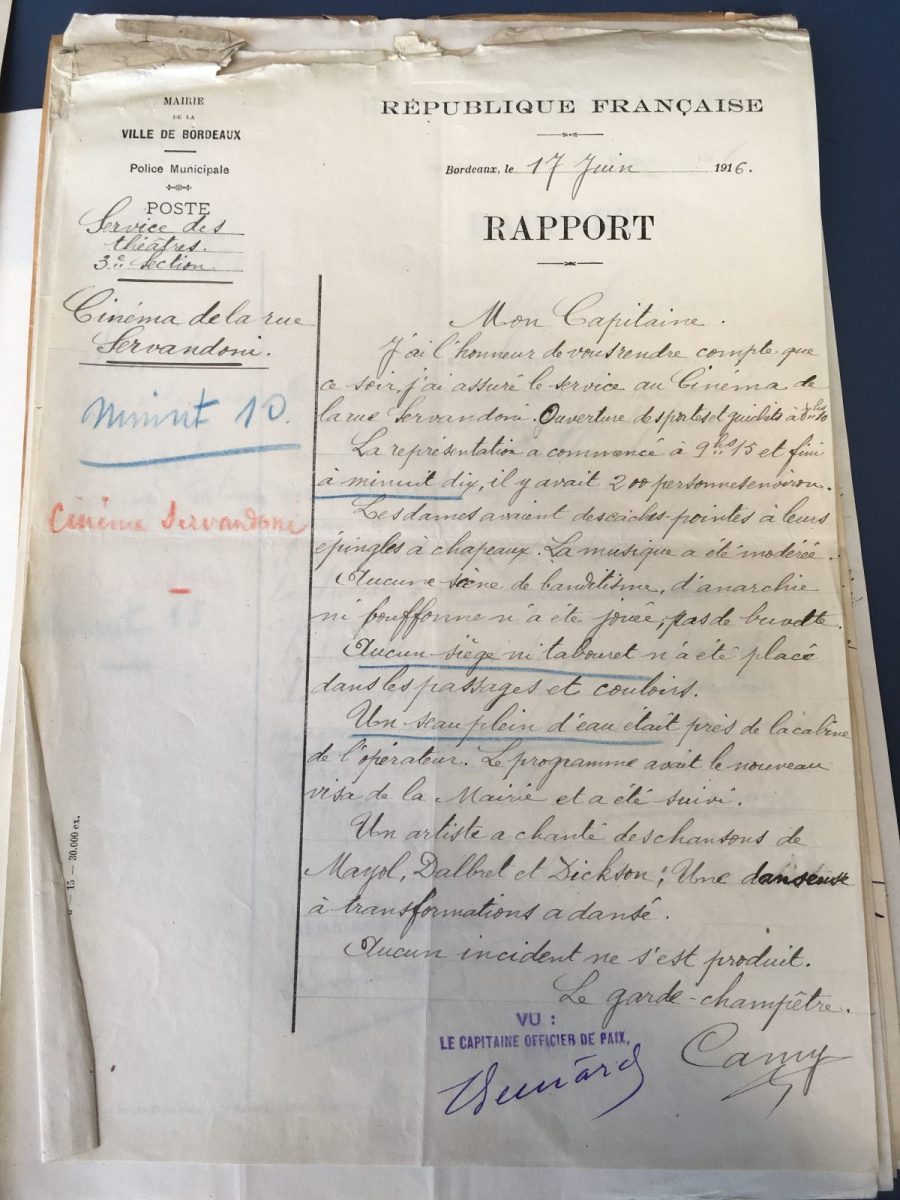 MAIRIE
DE LA
VILLE DE BORDEAUX
Police Municipale
POSTE
Service des
théâtres.
3e section
Cinéma de la rue
Servandoni.
minuit 10.
Cinéma Servandoni
RÉPUBLIQUE FRANÇAISE
Bordeaux, le 17 Juin 1916.
RAPPORT
Mon Capitaine.
J'ai l'honneur de vous rendre compte que
ce soir, j'ai assuré le service au Cinéma de
la rue Servandoni. Ouverture des portes et guichets à
La représentation a commencé à 9hs15 et fini
à minuit dix, il y avait 200 personnes environ.
Les dames avaient des caches-pointes à leurs
épingles à chapeaux. La musique a été modérée.
Aucune scène de banditisme, d'anarchie
ni bouffonne n'a été jouée, pas de buvette.
Aucun siège ni tabouret n'a été placé
dans les passages et couloirs.
Un seau plein d'eau était près de la cabine
de l'opérateur. Le programme avait le nouveau
visa de la Mairie et a été suivi.
Un artiste a chanté des chansons de
Mayol, Dalbret et Dickson; Une danseuse
à transformations a dansé.
Aucun incident ne s'est produit.
Le garde-champêtre.
Camy
VU :
LE CAPITAINE OFFICIER DE PAIX,
15 — 30.000 ex.